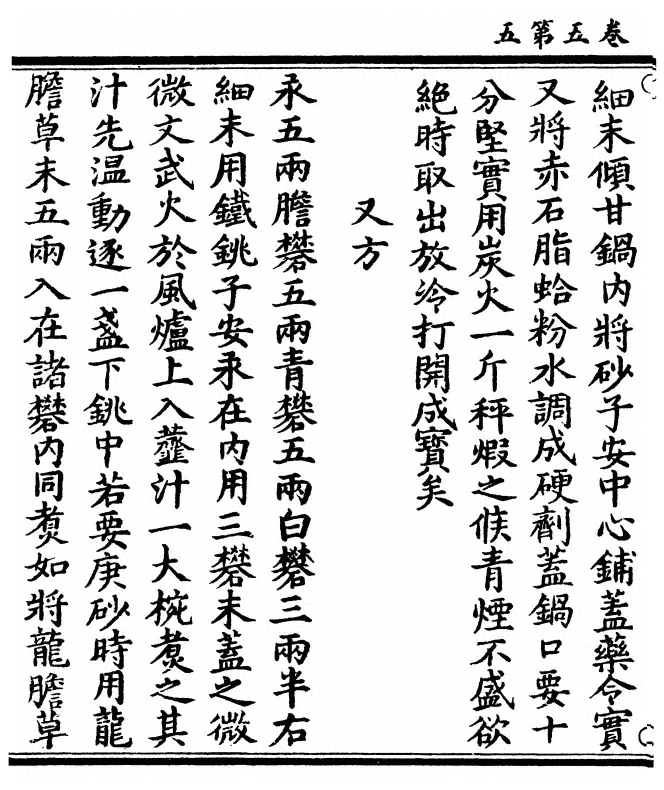 卷五第五
細末傾甘鍋内將砂子安中心鋪蓋藥令實
又將赤石脂蛤粉水調成硬劑蓋鍋口要十
分堅實用炭火一斤秤煆之候青煙不盛欲
絶時取出放冷打開成寳矣
又方
汞五兩膽礬五兩青礬五兩白礬三兩半右
細末用鐵銚子安汞在内用三礬末蓋之微
微文武火於風爐上入虀汁一大椀煑之其
汁先温動逐一盞下銚中若要庚砂時用龍
膽草末五兩入在諸礬内同煑如將龍膽草